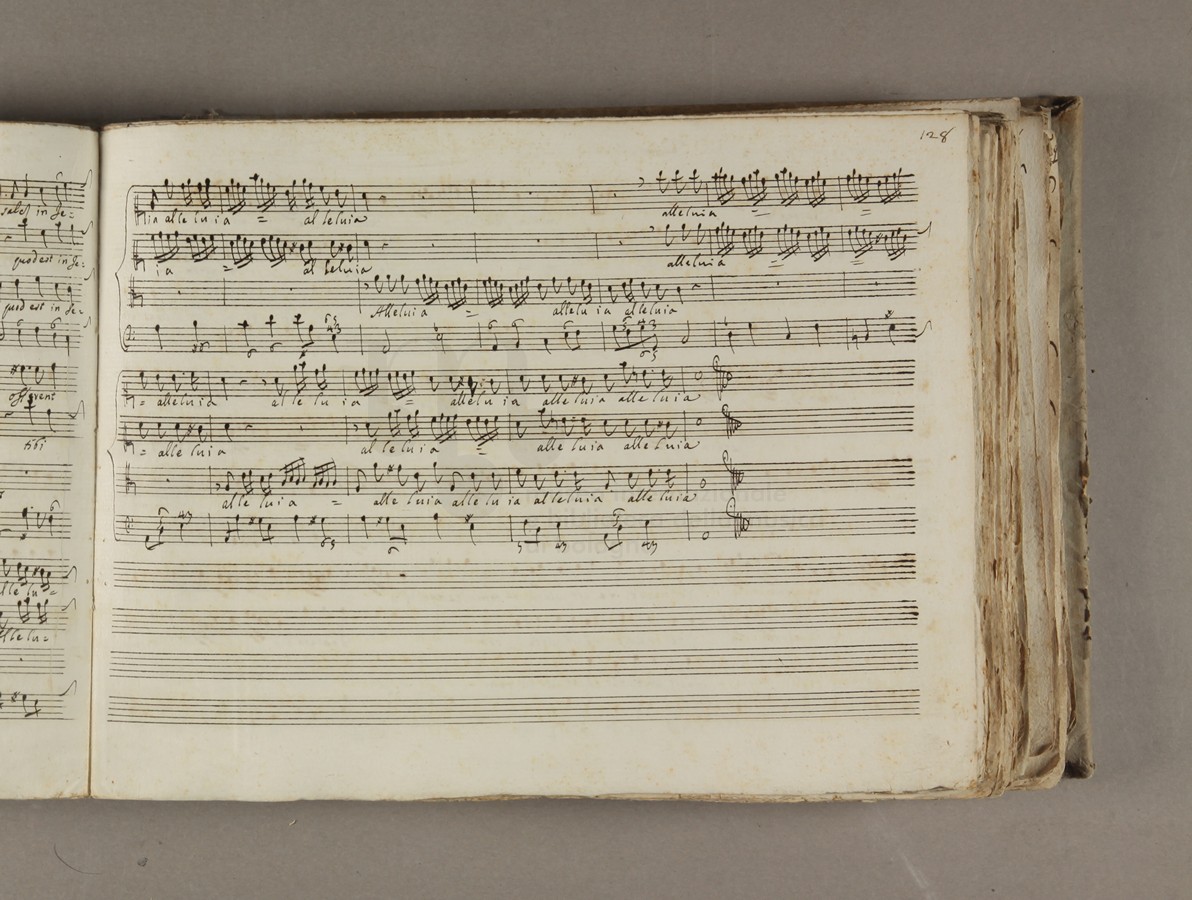 128
salest in Je=
quod est in Je=
quod est in Je=
offerent
tibi
lle lu=
Allelu=
ia alle lu ia = al leluia alleluia = =
ia = al leluia alleluia = =
Alleluia = allelu ia alleluia
= alleluia alle lu ia = allelu ia alleluia alle luia
= alle luia al le luia = alle luia alle luia
alle luia = alle luia alle lu ia al leluia alle luia